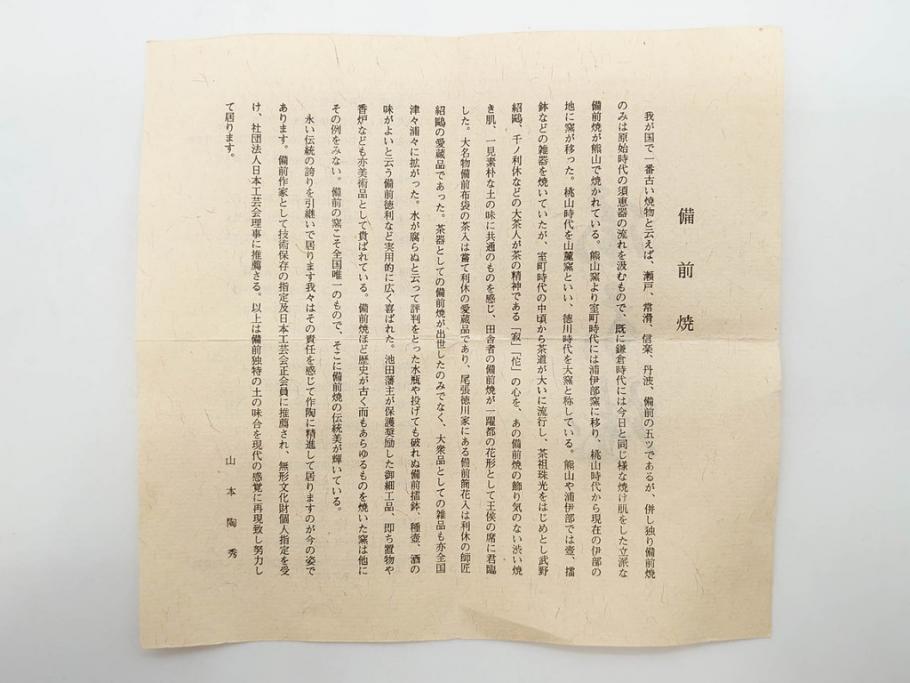 備前焼
我が国で一番古い焼物と云えば、瀬戸、常滑、信楽、丹波、備前の五ツであるが、併し独り備前焼
のみは原始時代の須恵器の流れを汲むもので、既に鎌倉時代には今日と同じ様な焼け肌をした立派な
備前焼が熊山で焼かれている。熊山窯より室町時代には浦伊部窯に移り、桃山時代から現在の伊部の
地に窯が移った。桃山時代を山麓窯といい、徳川時代を大窯と称している。熊山や浦伊部では壺、擂
鉢などの雑器を焼いていたが、室町時代の中頃から茶道が大いに流行し、茶祖珠光をはじめとし武野
紹鷗、千ノ利休などの大茶人が茶の精神である「寂」「佗」の心を、あの備前焼の飾り気のない渋い焼
き肌、一見素朴な土の味に共通のものを感じ、田舎者の備前焼が一躍都の花形として王侯の席に君臨
した。大名物備前布袋の茶入は嘗て利休の愛蔵品であり、尾張徳川家にある備前筒花入は利休の師匠
紹鷗の愛蔵品であった。茶器としての備前焼が出世したのみでなく、大衆品としての雑品も亦全国
津々浦々に拡がった。水が腐らぬと云って評判をとった水瓶や投げても破れぬ備前擂鉢、種壺、酒の
味がよいと云う備前徳利など実用的に広く喜ばれた。池田藩主が保護奨励した御細工品、即ち置物や
香炉なども亦美術品として貴ばれている。備前焼ほど歴史が古く而もあらゆるものを焼いた窯は他に
その例をみない。備前の窯こそ全国唯一のもので、そこに備前焼の伝統美が輝いている。
永い伝統の誇りを引継いで居ります我々はその責任を感じて作陶に精進して居りますのが今の姿で
あります。備前作家として技術保存の指定及日本工芸会正会員に推薦され、無形文化財個人指定を受
け、社団法人日本工芸会理事に推薦さる。以上は備前独特の土の味合を現代の感覚に再現致し努力し
て居ります。
山本陶秀